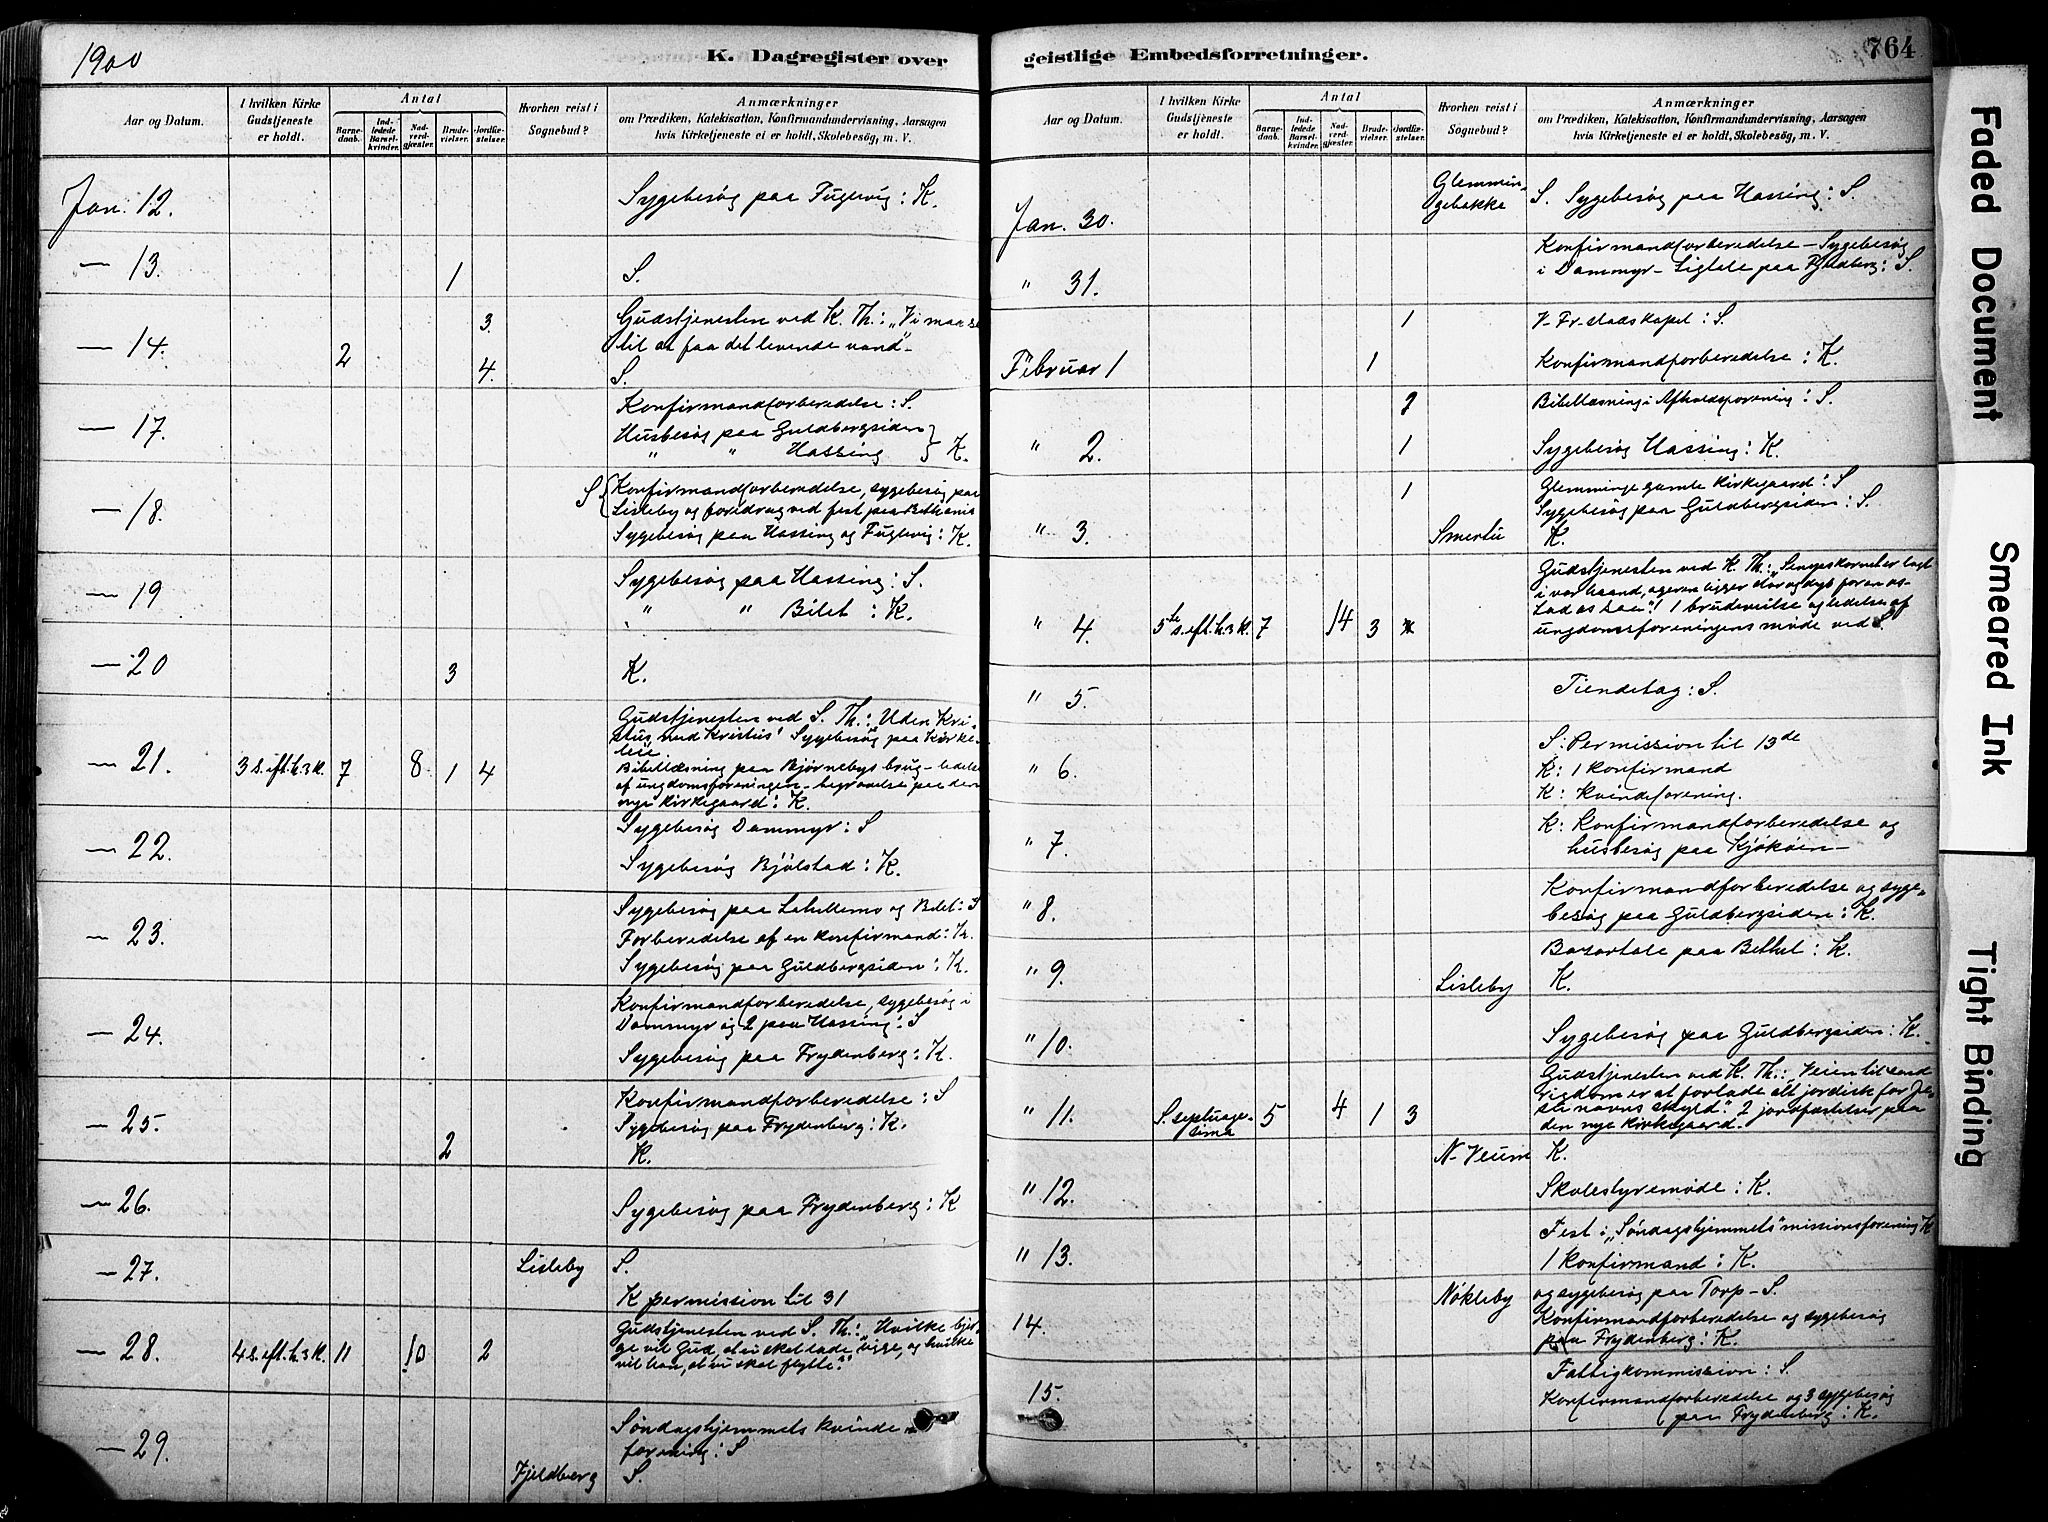 1900
K. Dagregister over
Aar og Datum.
I hvilken Kirke Gudstjeneste er holdt.
Antal
Barne-daab.
Ind-ledede Barsel-kvinder.
Nad-verd-gjæster.
Brude-vielser.
Jordfæ-stelser.
Hvorhen reist i Sognebud?
Anmærkninger
om Prædiken, Katekisation, Konfirmandundervisning, Aarsagen
hvis Kirketjeneste ei er holdt, Skolebesøg, m. V.
Jan. 12. Sygebesøg paa Fuglevig: K.
— 13. 1 S.
3. Gudstjenesten ved K. Th.: „Vi maa se
— 14. 2 til at faa det levende vand“-
4. S.
Konfirmandforberedelse: S.
— 17. Husbesøg paa Guldbergsiden
" " Hassing } K.
S { Konfirmandforberedelse, sygebesøg paa
— 18. Lisleby og foredrag ved fest paa Bethania
Sygebesøg paa Hassing og Fuglevig: K.
— 19 Sygebesøg paa Hassing: S.
" " Bilet: K.
— 20 3 K.
Gudstjenesten ved S. Th.: Uden Kri-
stus, med Kristus! Sygebesøg paa Kirke-
leie.
— 21. 3 s. eft. h. 3 K. 7 8 1 4 Bibellæsning paa Bjørnebys brug - ledelse
af ungdomsforeningen - begravelse paa den
nye kirkegaard: K.
— 22. Sygebesøg Dammyr: S
Sygebesøg Bjølstad: K.
Sygebesøg paa Labellemo og Bilet: S
— 23. Forberedelse af en konfirmand: K.
Sygebesøg paa Guldbergsiden: K.
Konfirmandforberedelse, sygebesøg i
— 24. Dammyr og 2 paa Hassing: S
Sygebesøg paa Frydenberg: K.
Konfirmandforberedelse: S
— 25. Sygebesøg paa Frydenberg: K.
2 K.
— 26. Sygebesøg paa Frydenberg: K
— 27. Lisleby S.
K permission til 31
Gudstjenesten ved S. Th.: „Hvilke bjer-
— 28. 4 s. eft. h. 3 K. 11 10 2 ge vil Gud, at vi skal lade ligge, og hvilke
vil han, at vi skal flytte?“
Søndagshjemmets kvinde-
— 29. forening: S
Fjeldberg S.
geistlige Embedsforretninger.
764
Aar og Datum.
I hvilken Kirke Gudstjeneste er holdt.
Antal
Barne-daab.
Ind-ledede Barsel-kvinder.
Nad-verd-gjæster.
Brude-vielser.
Jordfæ-stelser.
Hvorhen reist i Sognebud?
Anmærkninger
om Prædiken, Katekisation, Konfirmandundervisning, Aarsagen
hvis Kirketjeneste ei er holdt, Skolebesøg, m. V.
Jan. 30. Glemmin-gebakke S. Sygebesøg paa Hassing: S.
Konfirmandforberedelse - Sygebesøg
" 31. i Dammyr - Ligtale paa Fjeldberg: S.
1 V- Fr-stadskapel: S.
Februar 1 1 Konfirmandforberedelse: K.
2 Bibellæsning i Afholdsforening: S.
" 2. 1 Sygebesøg Hassing: K.
1 Glemminge gamle kirkegaard: S
Sygebesøg paa Guldbergsiden: S.
" 3. Smertu K.
Gudstjenesten ved K. Th.: „Sennepskornet er lagt
i vor haand, ageren ligger stor og dyb foran os-
Lad os saa“! 1 brudevielse og ledelse af
" 4. 5te s. eft. h. 3 K. 7 14 3 ungdomsforeningens møde ved S.
" 5. Tiendetag: S.
S: Permission til 13de
" 6. K: 1 konfirmand
K: kvindeforening.
" 7. K: Konfirmandforberedelse og
husbesøg paa Kjøkøen -
" 8. Konfirmandforberedelse og syge-
besøg paa Guldbergsiden: K.
Basartale paa Bethel: K.
" 9. Lisleby K.
" 10. Sygebesøg paa Guldbergsiden: K.
Gudstjenesten ved K. Th.: Veien til sand
rigdom er at forlade alt jordisk for Je-
" 11. S. septuage-sima 5 4 1 3 su navns skyld“. 2 jordfæstelser paa
den nye kirkegaard.
N- Veum K.
" 12. Skolestyremøde: K.
Fest i „Søndagshjemmets“ missionsforening K
" 13. 1 konfirmand: K.
Nøkleby og sygebesøg paa Torp - S.
14. Konfirmandforberedelse og sygebesøg
paa Frydenberg: K.
Fattigkommission: S.
15. Konfirmandforberedelse og 3 sygebesøg
paa Frydenberg: K.
Faded Document
Smeared Ink
Tight Binding